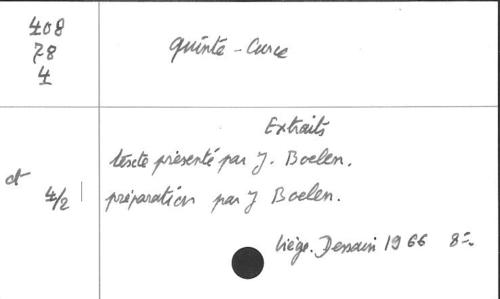 408
78
4
Quinte-Curce
Extraits
texte présenté par J. Boelen.
et
4/2
préparation par J Boelen.
Liège. Dessain 1966 8°